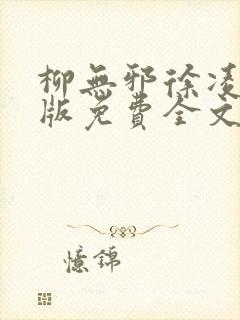 柳無邪徐凌
版免費全文
憶錦